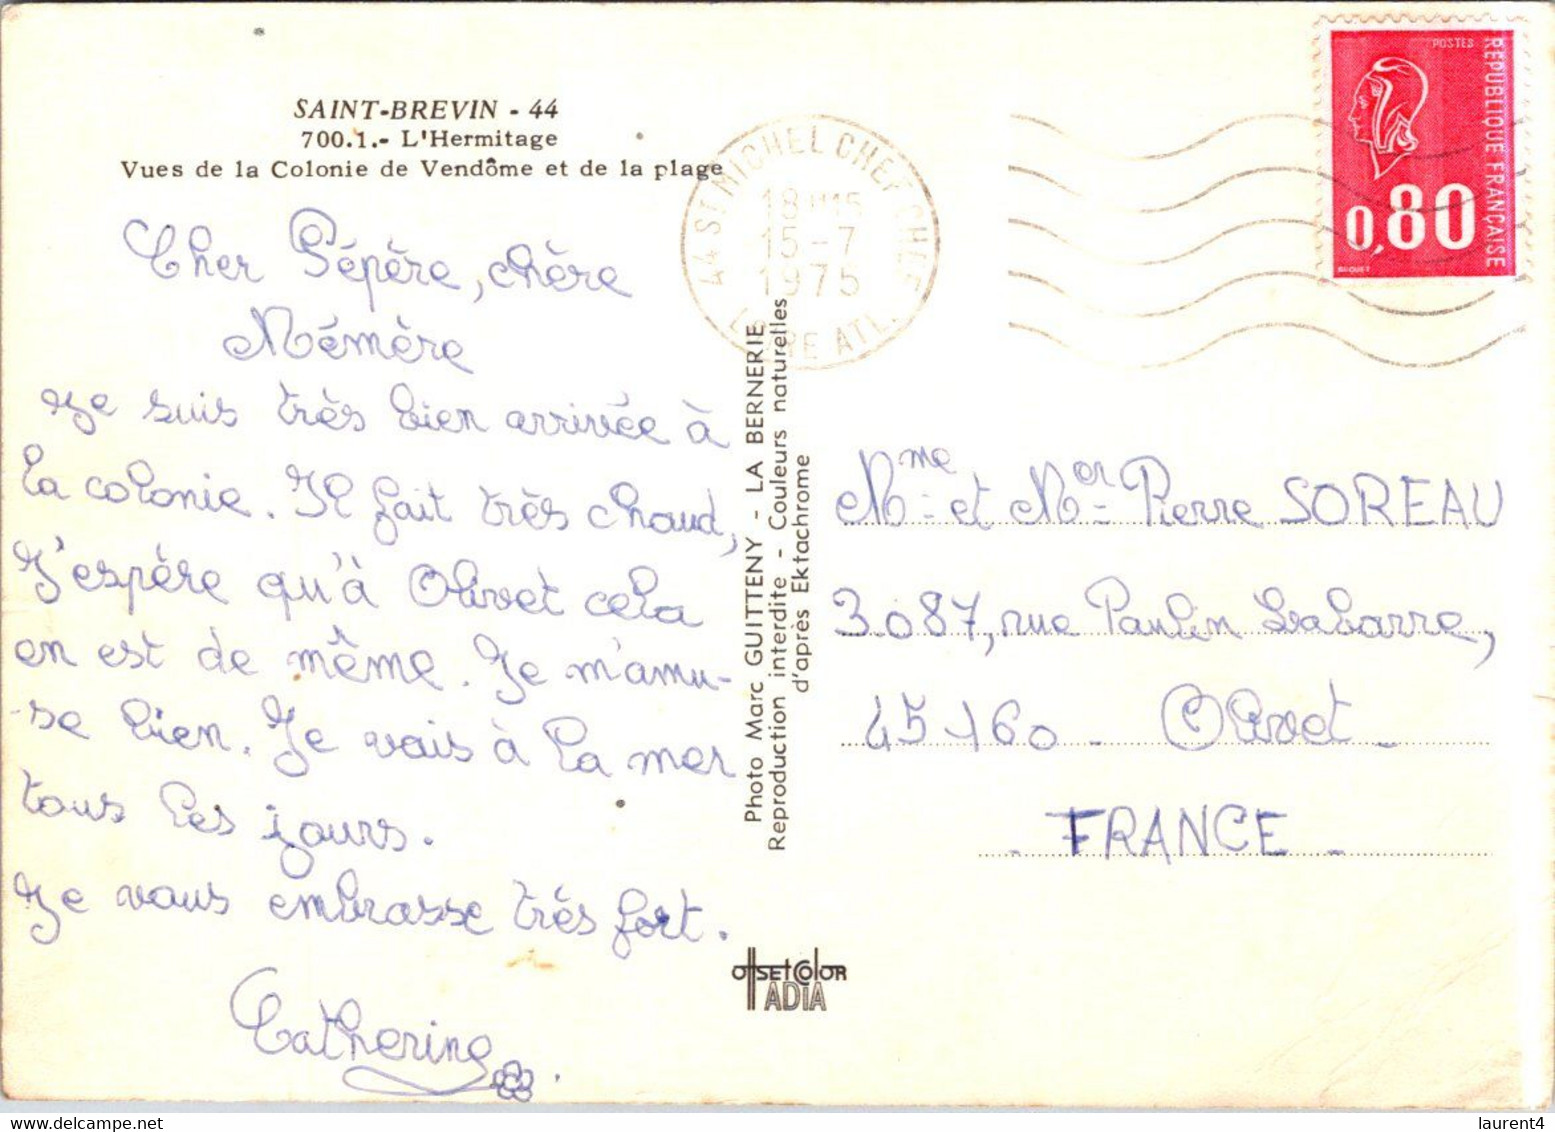 SAINT-BREVIN - 44
700.1.- L'Hermitage
Vues de la Colonie de Vendôme et de la plage
Cher Pépère, chère
Mémère
Je suis très bien arrivée à
la colonie. Il fait très chaud,
J'espère qu'à Olivet cela
en est de même. Je m'amu-
-se bien. Je vais à la mer
tous les jours.
Je vous embrasse très fort.
Catherine
44 ST MICHEL CHEF CHEF
18H15
15-7
1975
LOIRE ATL.
POSTES
REPUBLIQUE FRANÇAISE
0,80
BEQUET
Photo Marc GUITTENY - LA BERNERIE
Reproduction interdite - Couleurs naturelles
d'après Ektachrome
OffSET COlOR
ADIA
Mme et Mer Pierre SOREAU
3.087, rue Paulin Labarre,
45160 - Olivet -
- FRANCE -
laurent4